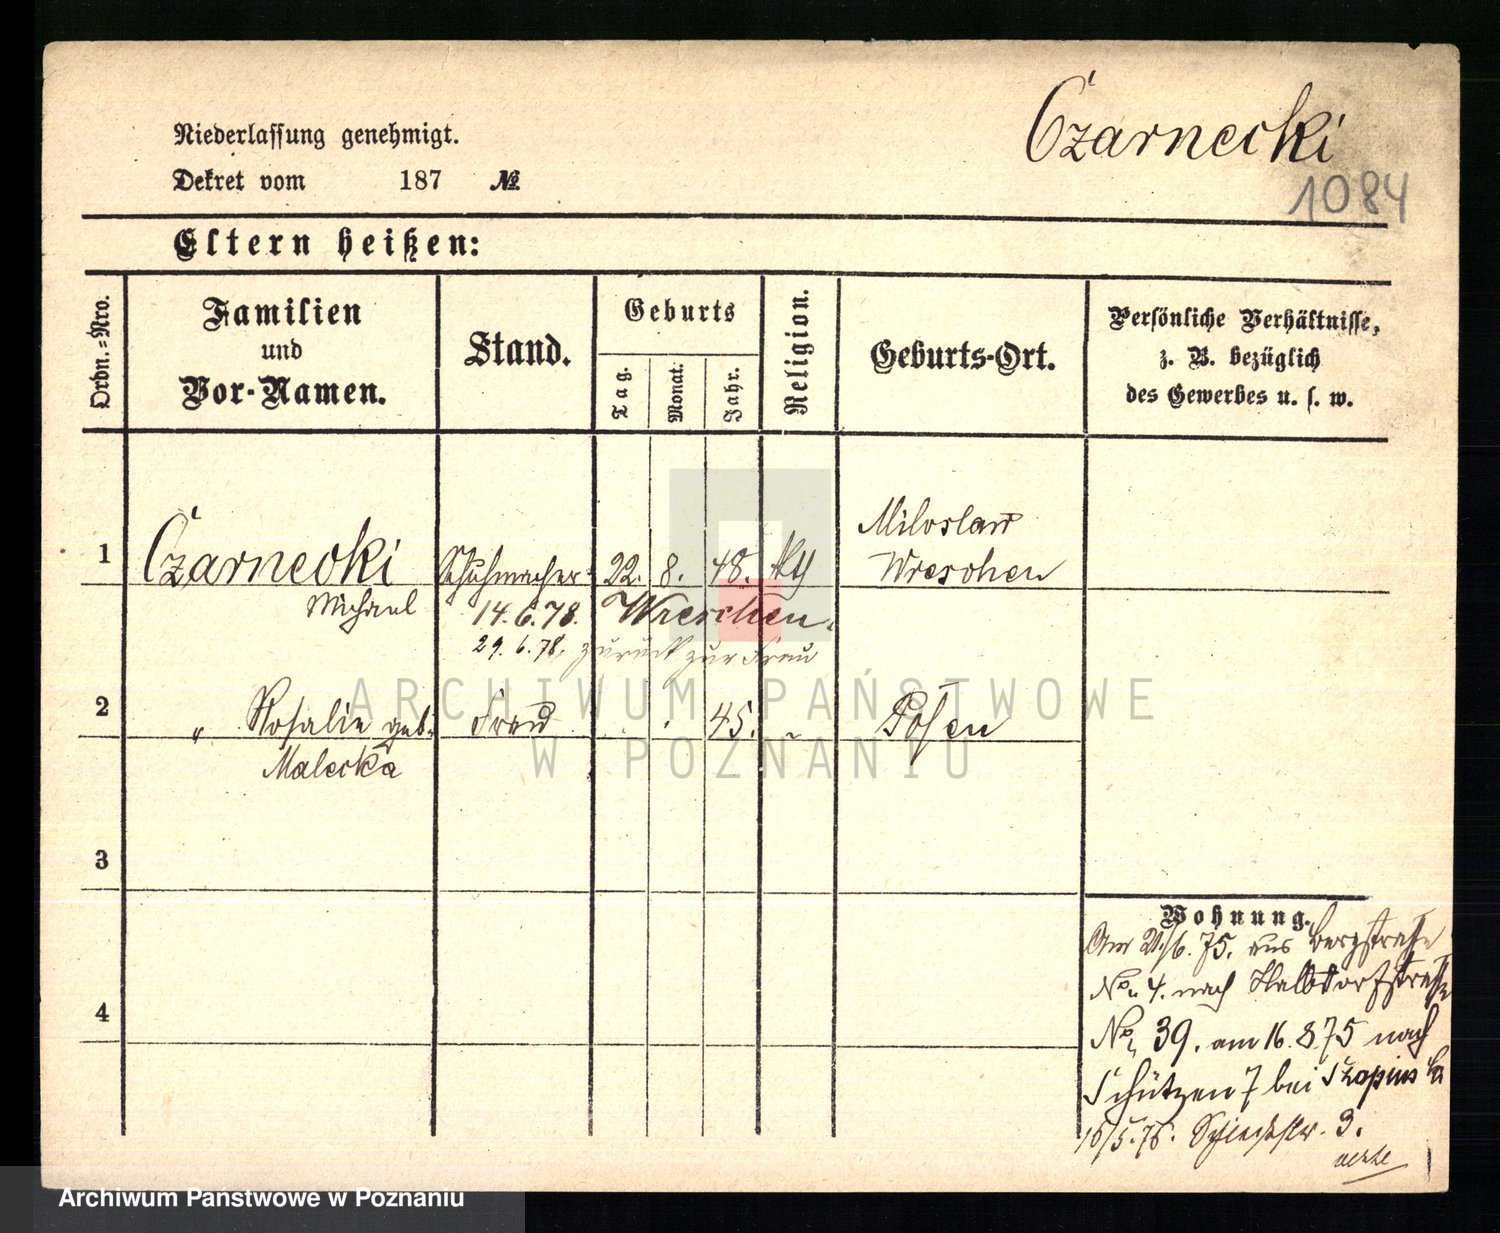 Czarnecki
1084
Niederlassung genehmigt.
Dekret vom 187 №
Eltern heißen:
Ordn.-Nro.
Familien
und
Vor-Namen.
Stand.
Geburts
Tag.
Monat.
Jahr.
Religion.
Geburts-Ort.
Persönliche Verhältnisse,
z. B. bezüglich
des Gewerbes u. s. w.
Miloslaw
1 Czarnecki Schuhmacher 22. 8. 48. kth Wreschen
Michael 14.6.78. Wreschen.
29.6.78. zurück zur Frau
2 " Rosalie geb. Frau 45. " Posen
Malecka
3
4
Wohnung.
Am 21/6. 75. aus Bergstraße
No. 4. nach Halbdorfstraße
No. 39. am 16.8.75 nach
Schützen 7 bei
16/5.76. 3.
ARCHIWUM PAŃSTWOWE
W POZNANIU
Archiwum Państwowe w Poznaniu